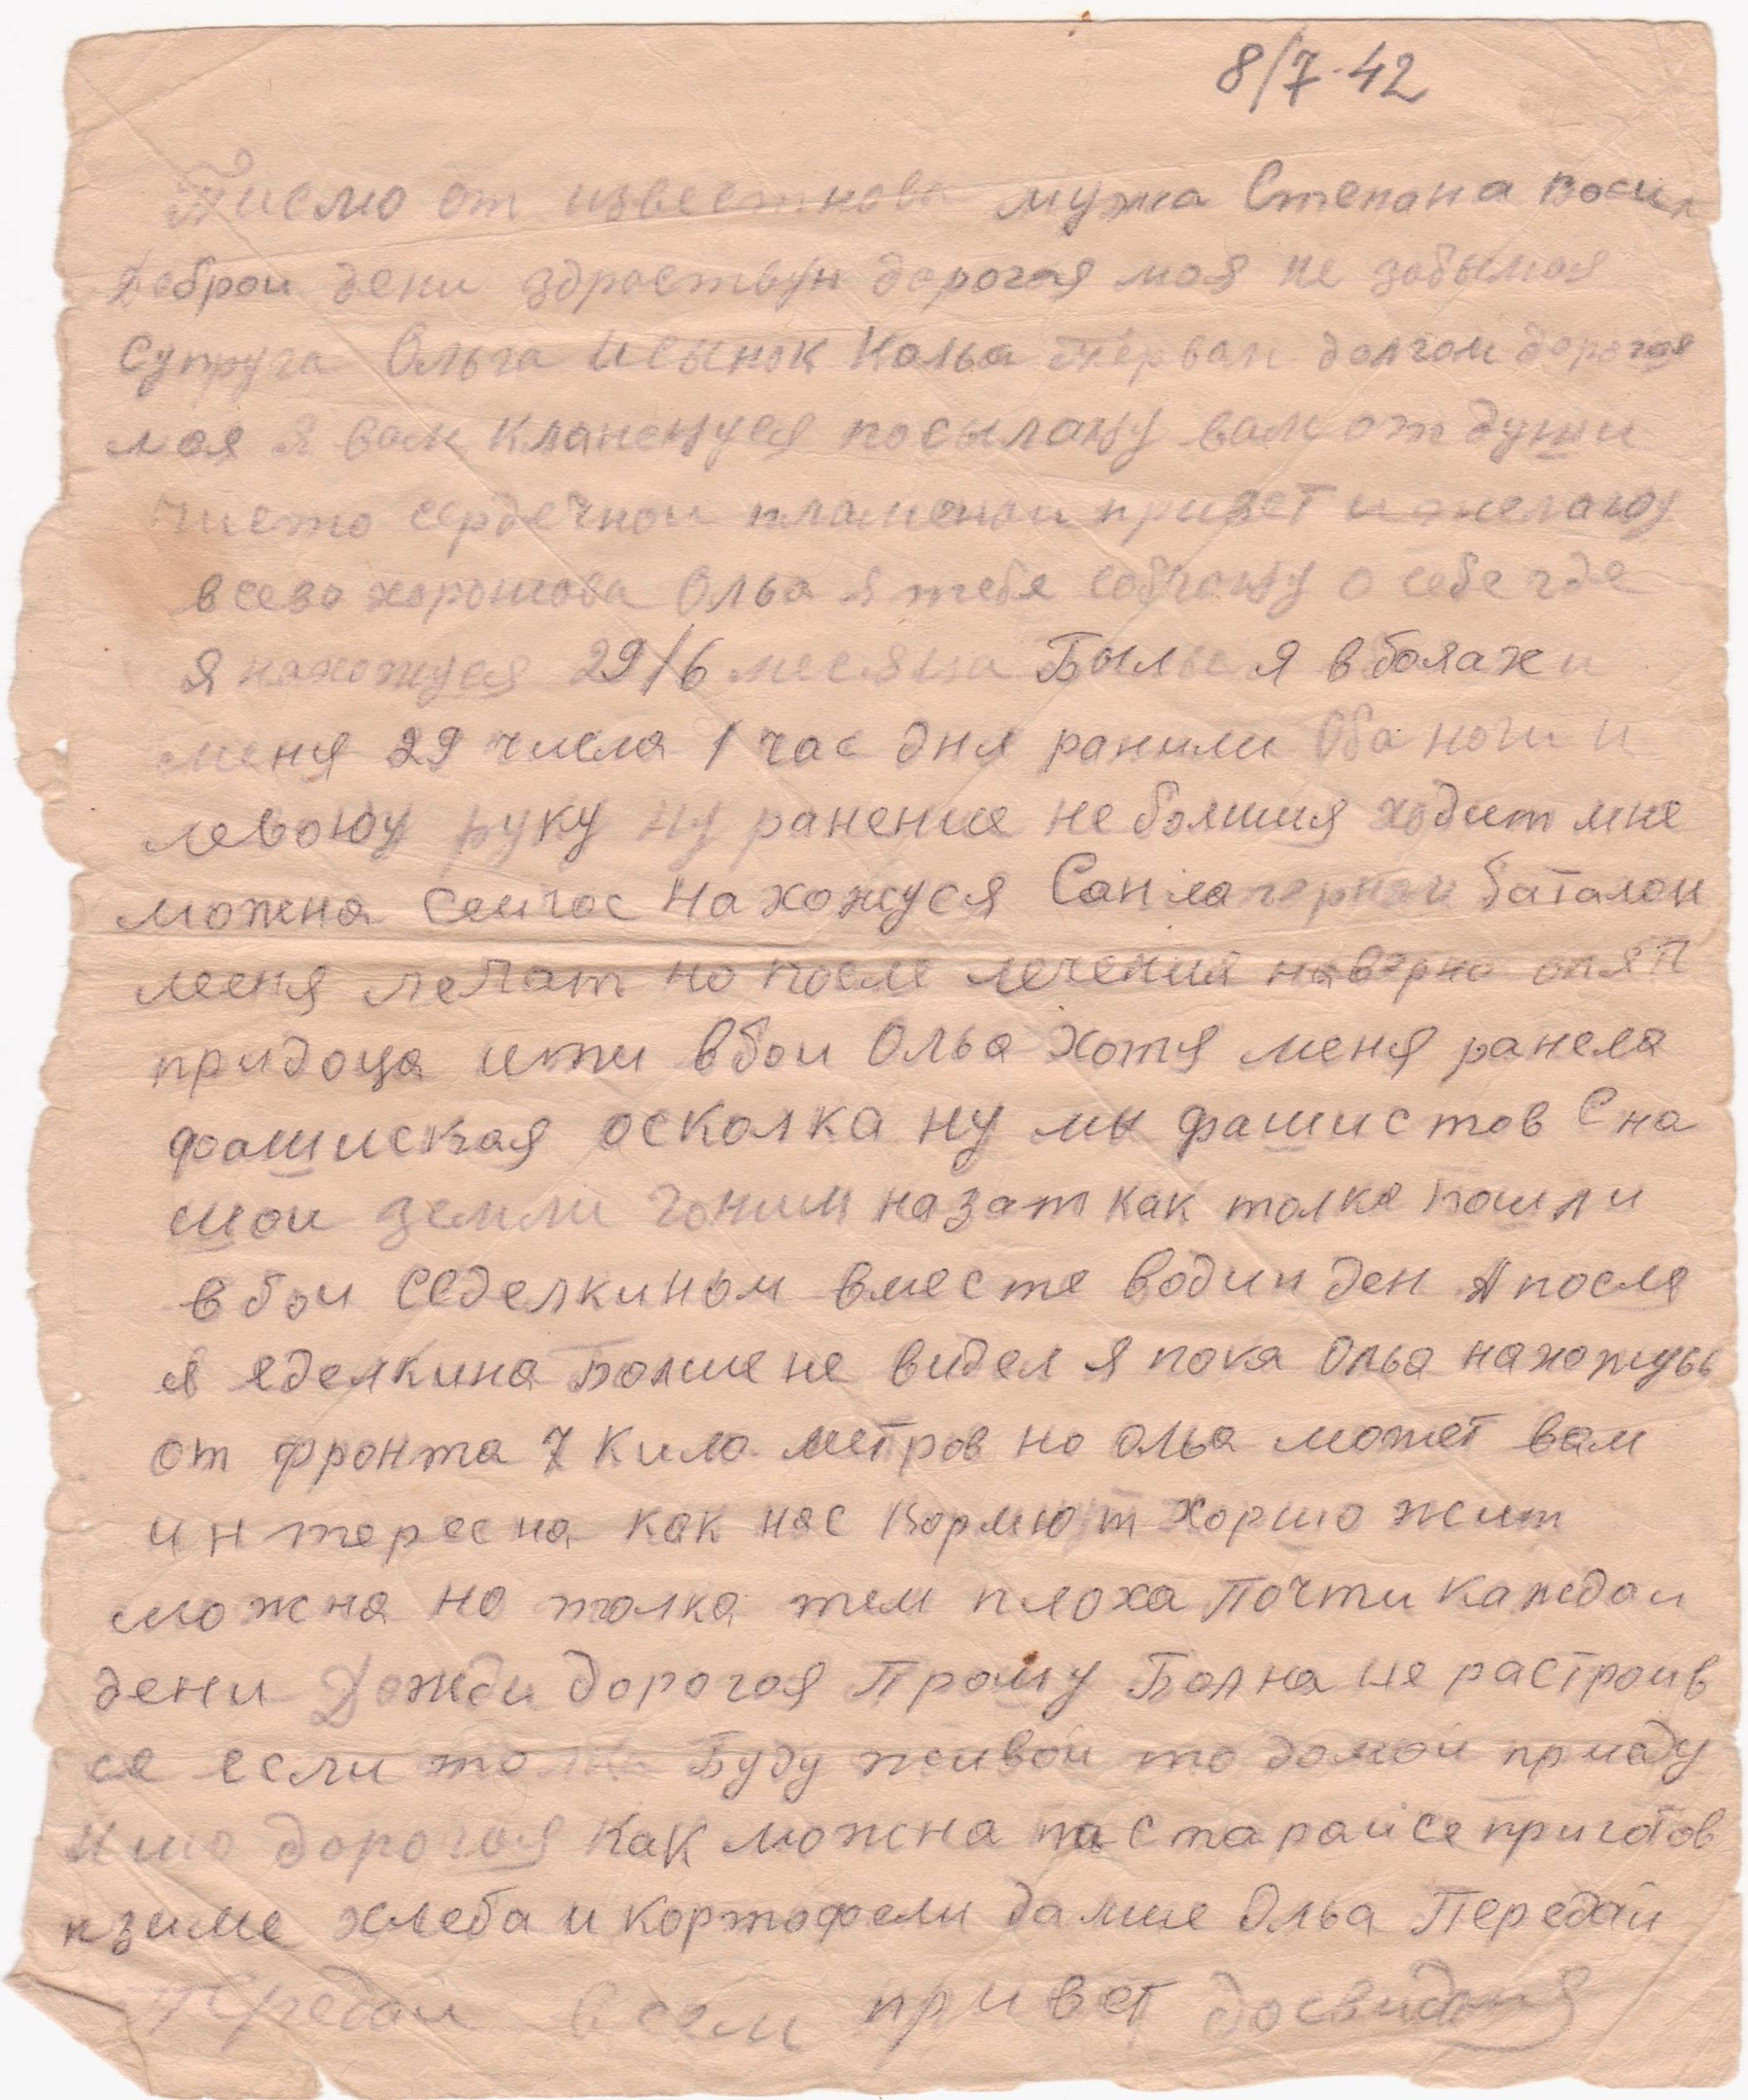 8/7-42
Писмо от известнова мужа Степана Васил
Доброи дени здраствун дорогая моя не забымая
Супруга Ольга и сынок Колья Первам долгом дорогая
моя я вам кланеюуся посылаюу вам от души
чисто сердечнои пламенои привет и желаюу
всево хорошова Олья я тебе собчаюу о себе где
я нахожуся 29/6 месяца Был я в бояах и
меня 29 числа 1 час дня ранили Оба ноги и
левоюу руку ну ранение не болшия ходит мне
можна сеичас нахожуся баталон
меня лечат но после лечения наверно опят
придоца ити в бои Олья Хотя меня ранела
фашиская осколка ну мы фашистов С на
шои земли гоним назат как толка пошли
в бои Седелкином вместе водин ден А после
я еделкина Болше не видел я пока Олья нахожусь
от фронта 7 Кило метров но олья может вам
интересна как нас Кормюут хоршо жит
можна но толка тем плоха Почти каждои
дени Дожди дорогая Прошу Болна не растроив
се если Буду живой то домой приеду
дорогая Как можна пастарайсе приготов
к зиме хлеба и картофели далше Олья Передай
Передаи всем привет досвиданя